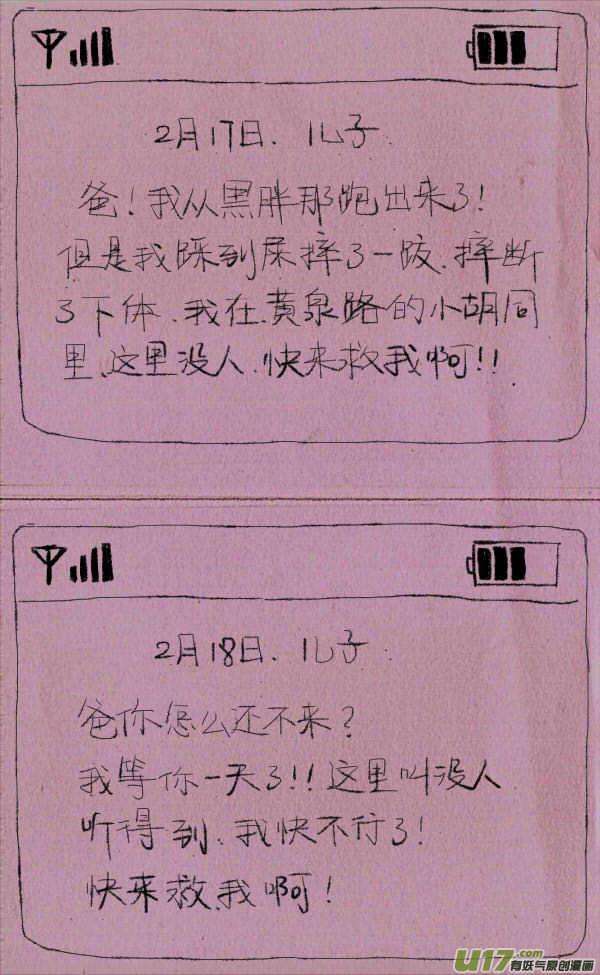 2月17日. 儿子.
爸！我从黑胖那跑出来了！
但是我踩到屎摔了一跤、摔断
了下体、我在黄泉路的小胡同
里、这里没人、快来救我啊!!
2月18日. 儿子.
爸你怎么还不来？
我等你一天了!! 这里叫没人
听得到、我快不行了！
快来救我啊！
U17.com
有妖气原创漫画